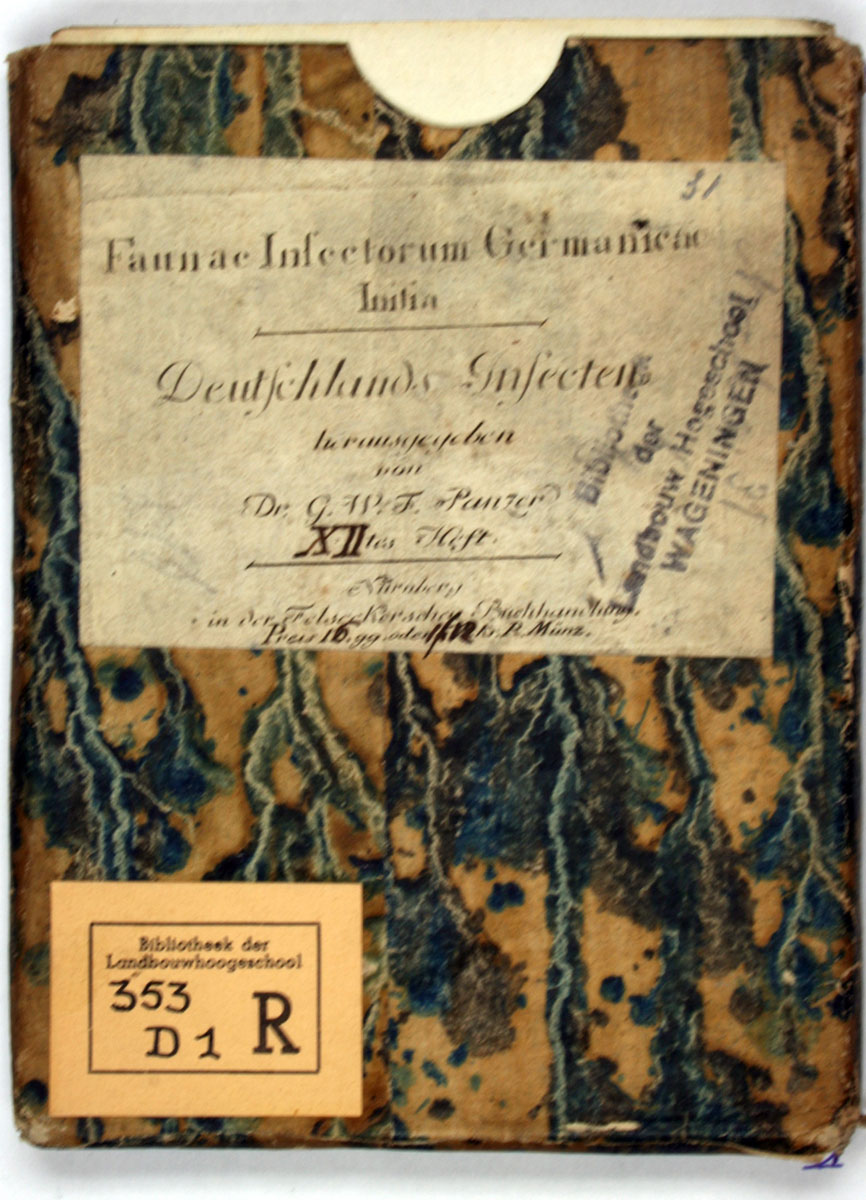 31
Faunae Insectorum Germanicae
Initia
Deutschlands Insecten
herausgegeben
von
Dr. G. W. F. Panzer
XIItes Heft.
Nürnberg
in der Felseckerschen Buchhandlung.
Preis 16 gg. oder 1/12 kr. R. Münz.
Bibliotheek
der
Landbouw Hogeschool
WAGENINGEN
Bibliotheek der
Landbouwhoogeschool
353
D 1 R